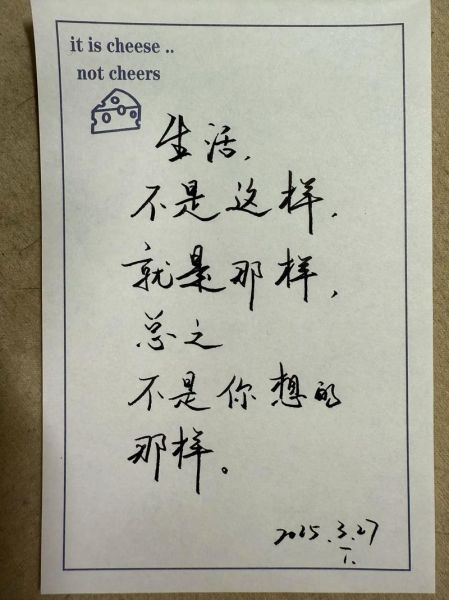 it is cheese ..
not cheers
生活,
不是这样,
就是那样,
总之
不是你想的
那样。
2025.3.27
T.